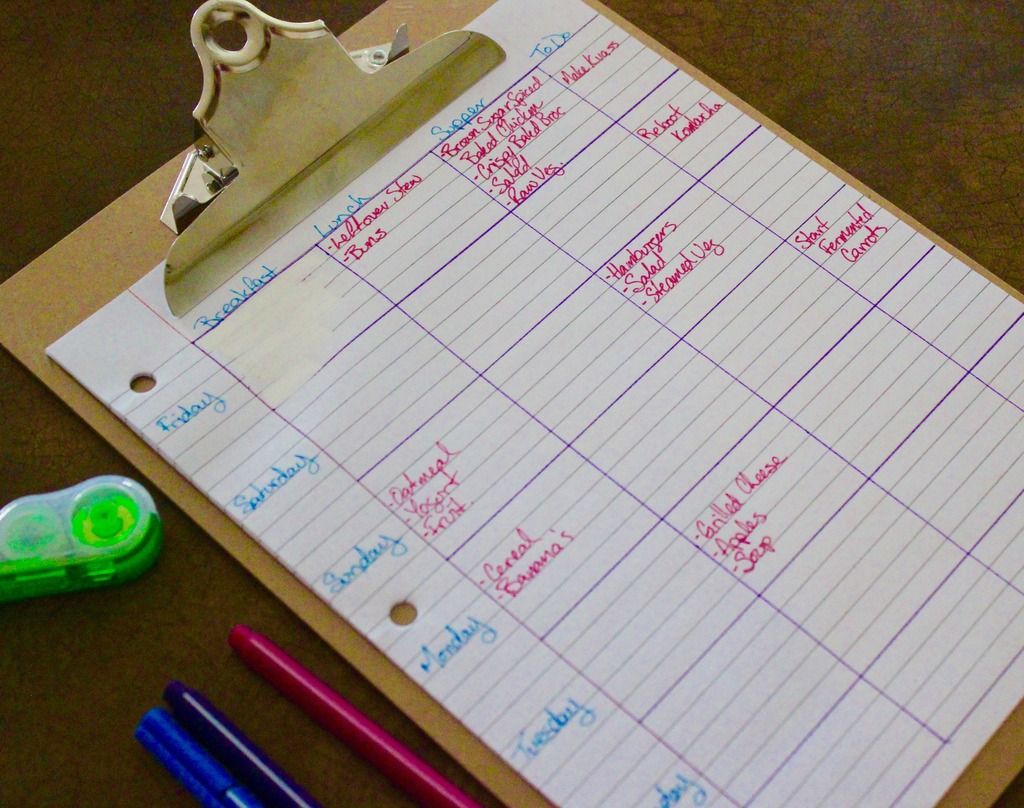 Breakfast
Lunch
Supper
To Do
Friday
-Leftover Stew
-Buns
-Brown Sugar Spiced
Baked Chicken
-Crispy Baked Broc
-Salad
-Raw Veg.
Make Kvass
Saturday
Reboot
Sunday
-Oatmeal
-Yogurt
-Fruit
-Hamburgers
-Salad
-Steamed Veg
Start
Fermented
Carrots
Monday
-Cereal
-Banana's
Tuesday
-Grilled Cheese
-Apples
-Soup
day